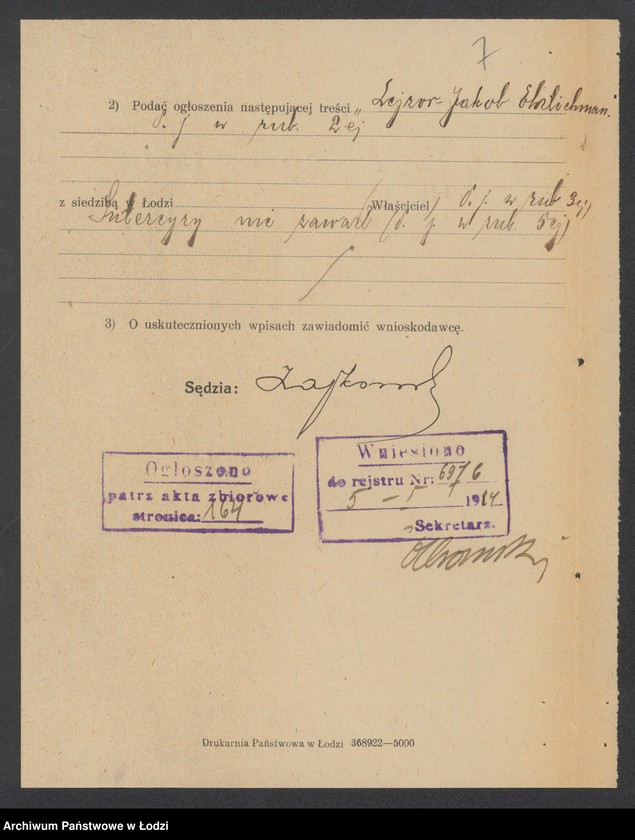 7
2) Podać ogłoszenia następującej treści „ Lejzor-Jakob Ehrlichman"
d. j w rub. 2ej
z siedzibą w Łodzi (Właściciel) d. j. w rub 3ej)
Intercyzy nie zawarł (d. j. w rub. 5ej)
3) O uskutecznionych wpisach zawiadomić wnioskodawcę.
Sędzia:
Ogłoszono
patrz akta zbiorowe
stronica: 164
Wniesiono
do rejestru Nr: 6976
5 – I 1924
Sekretarz.
Drukarnia Państwowa w Łodzi 368922—5000
Archiwum Państwowe w Łodzi